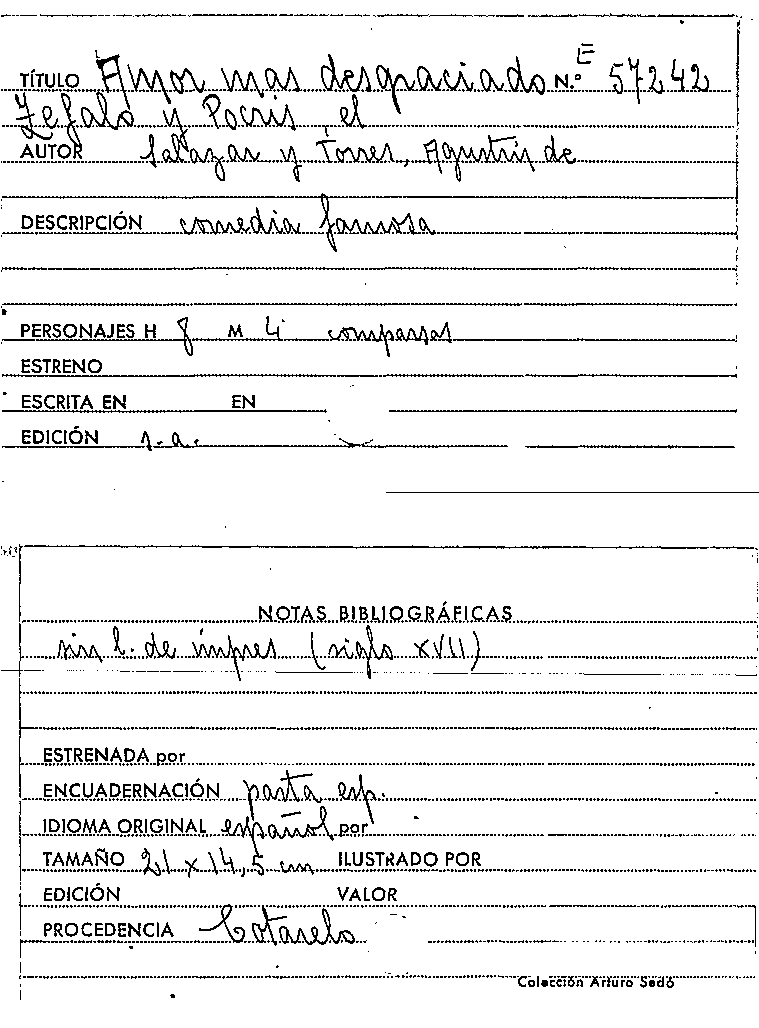 TÍTULO Amor mas desgraciado N.º E 57242
Zefalo y Pocris, el
AUTOR Salazar y Torres, Agustín de
DESCRIPCIÓN comedia famosa
PERSONAJES H 8 M 4 comparsas
ESTRENO
ESCRITA EN EN
EDICIÓN s.a.
NOTAS BIBLIOGRÁFICAS
sin l. de impres (siglo XVII)
ESTRENADA por
ENCUADERNACIÓN pasta esp.
IDIOMA ORIGINAL español por
TAMAÑO 21 x 14,5 cm ILUSTRADO POR
EDICIÓN VALOR
PROCEDENCIA Cotarelo
Colección Arturo Sedó